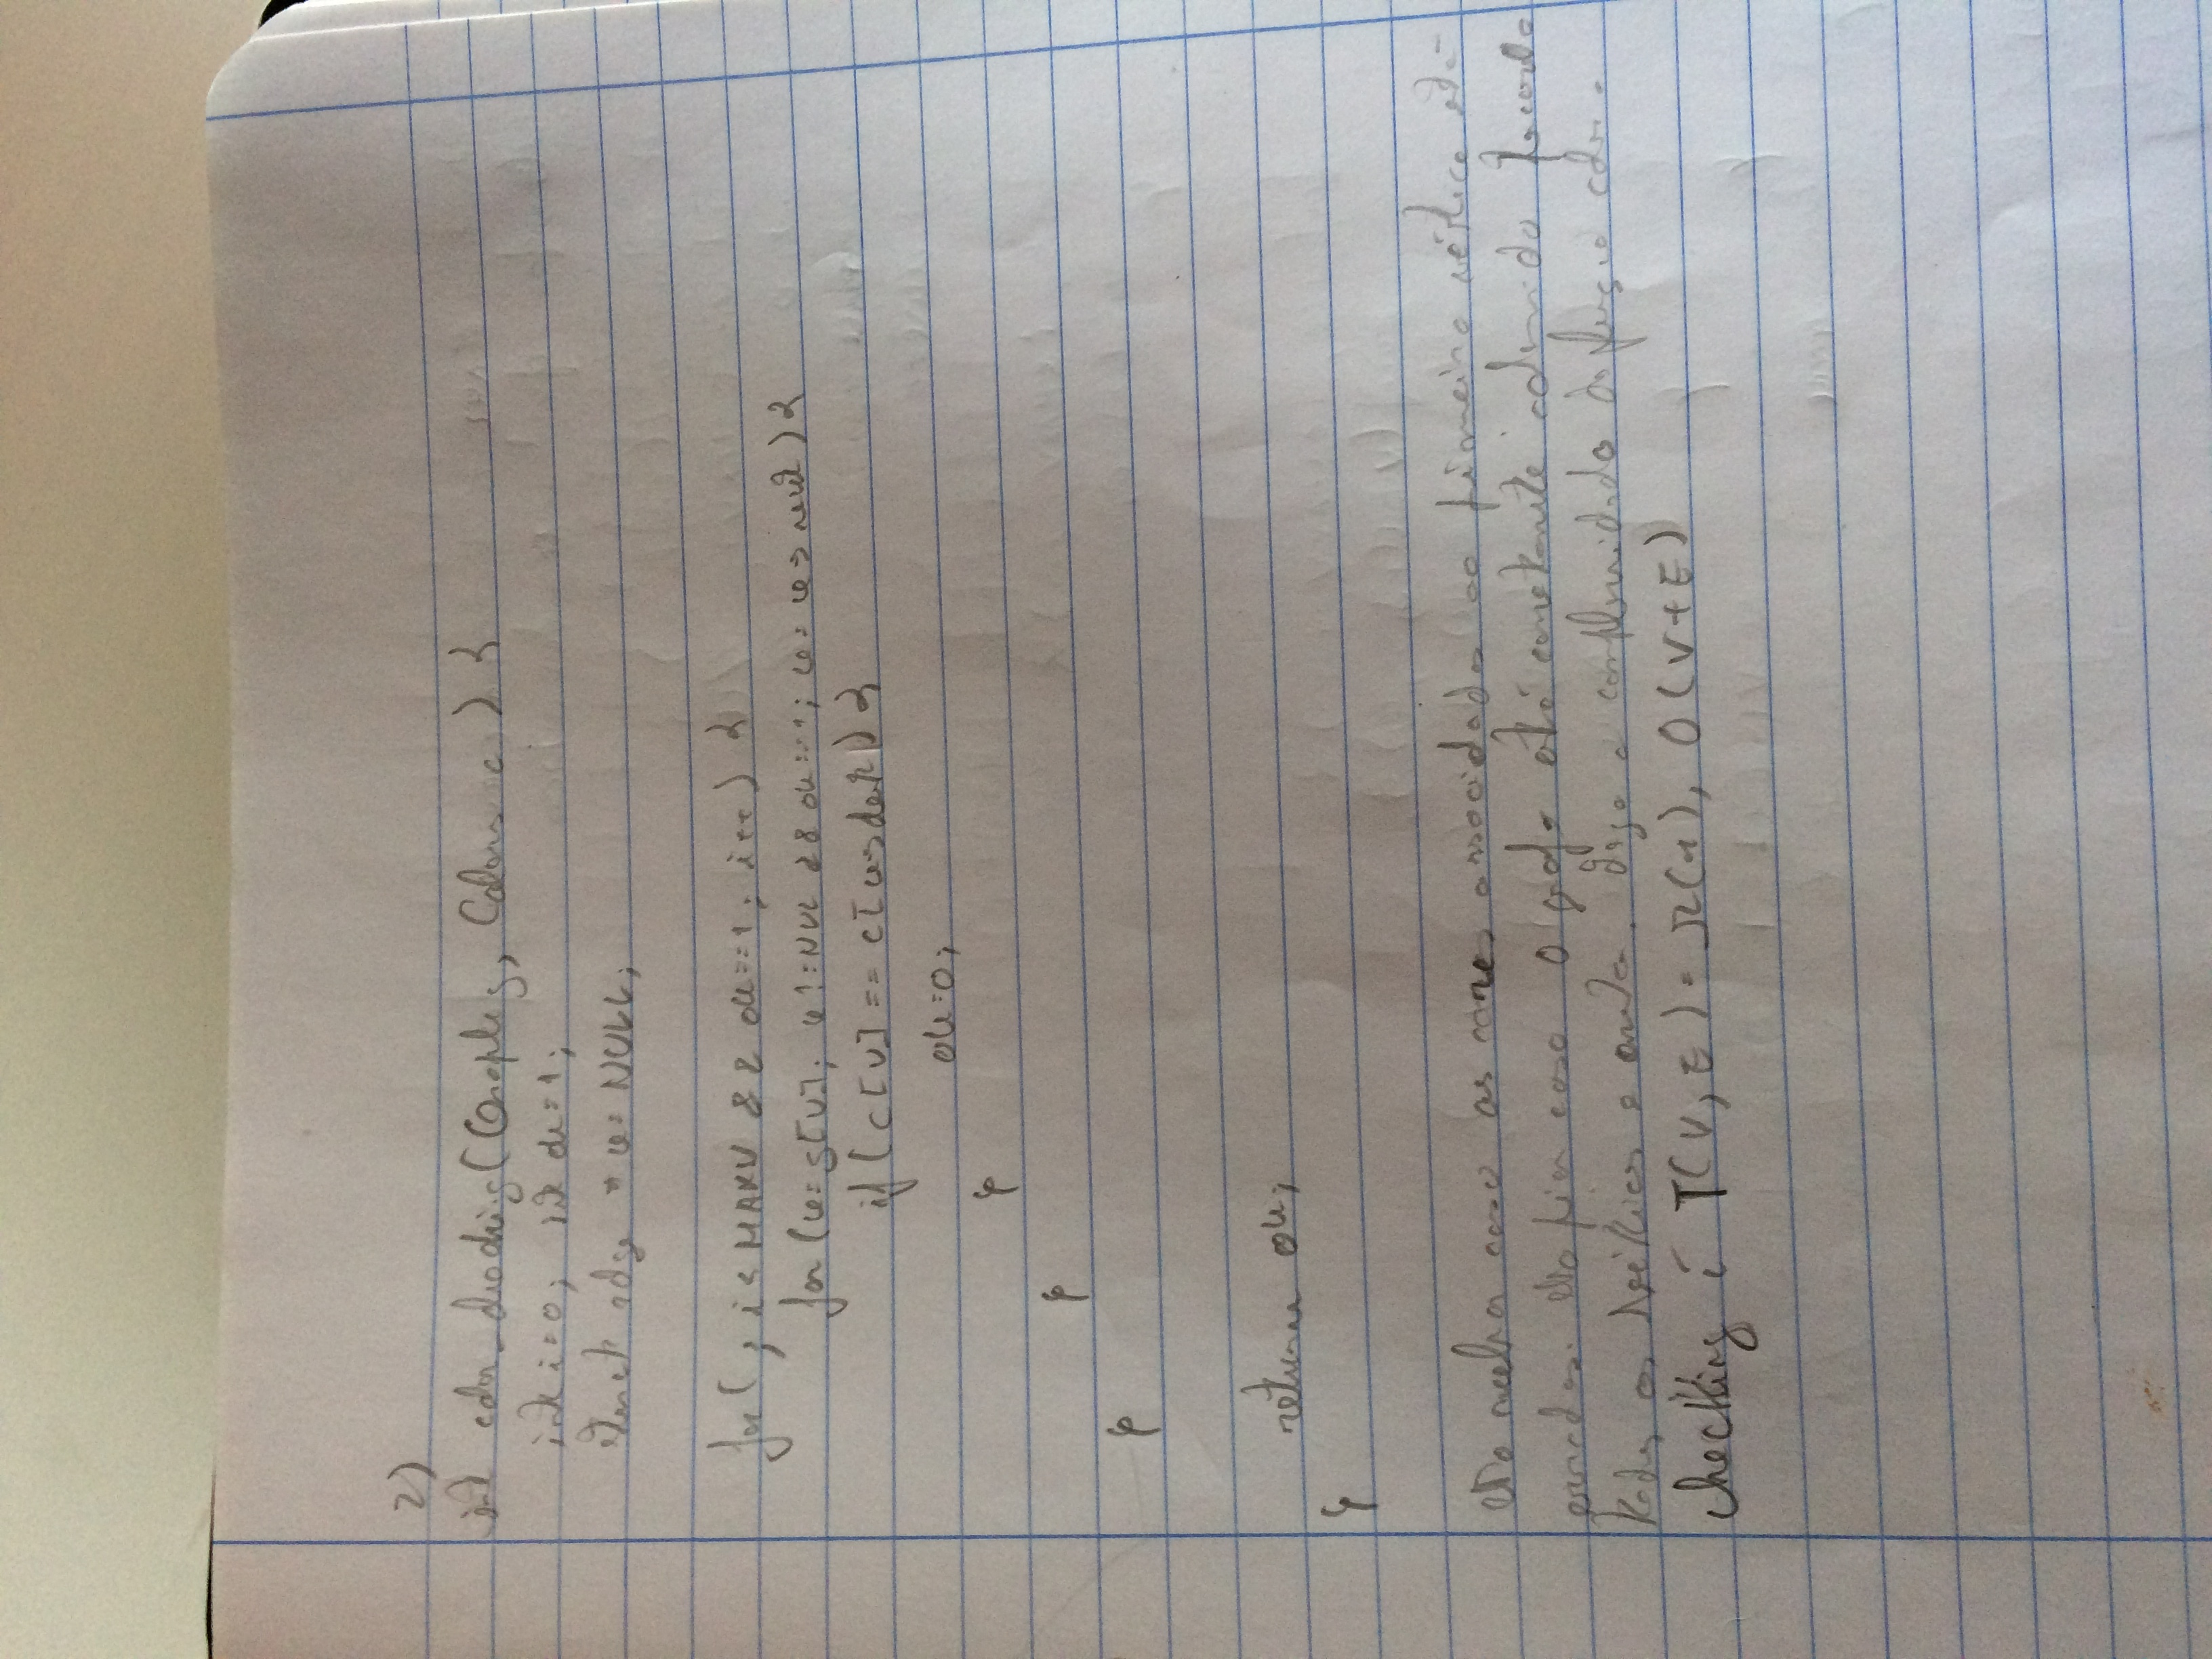 2)
int color_checking(Graph g, Colors c) {
int i=0; int ok=1;
struct edge * w= NULL;
for( ; i< MAXV && ok==1; i++) {
for (w= g[v]; w!=NULL && ok==1; w= w->next) {
if (c[v] == c[w->dest]) {
ok=0;
}
}
}
return ok;
}
No melhor caso as cores associadas ao primeiro vértice estão
erradas. No pior caso o grafo está corretamente colorido percorre
todos os vértices e arestas. Logo a complexidade da função color-
checking é T(V,E) = Ω(1), O(V+E)